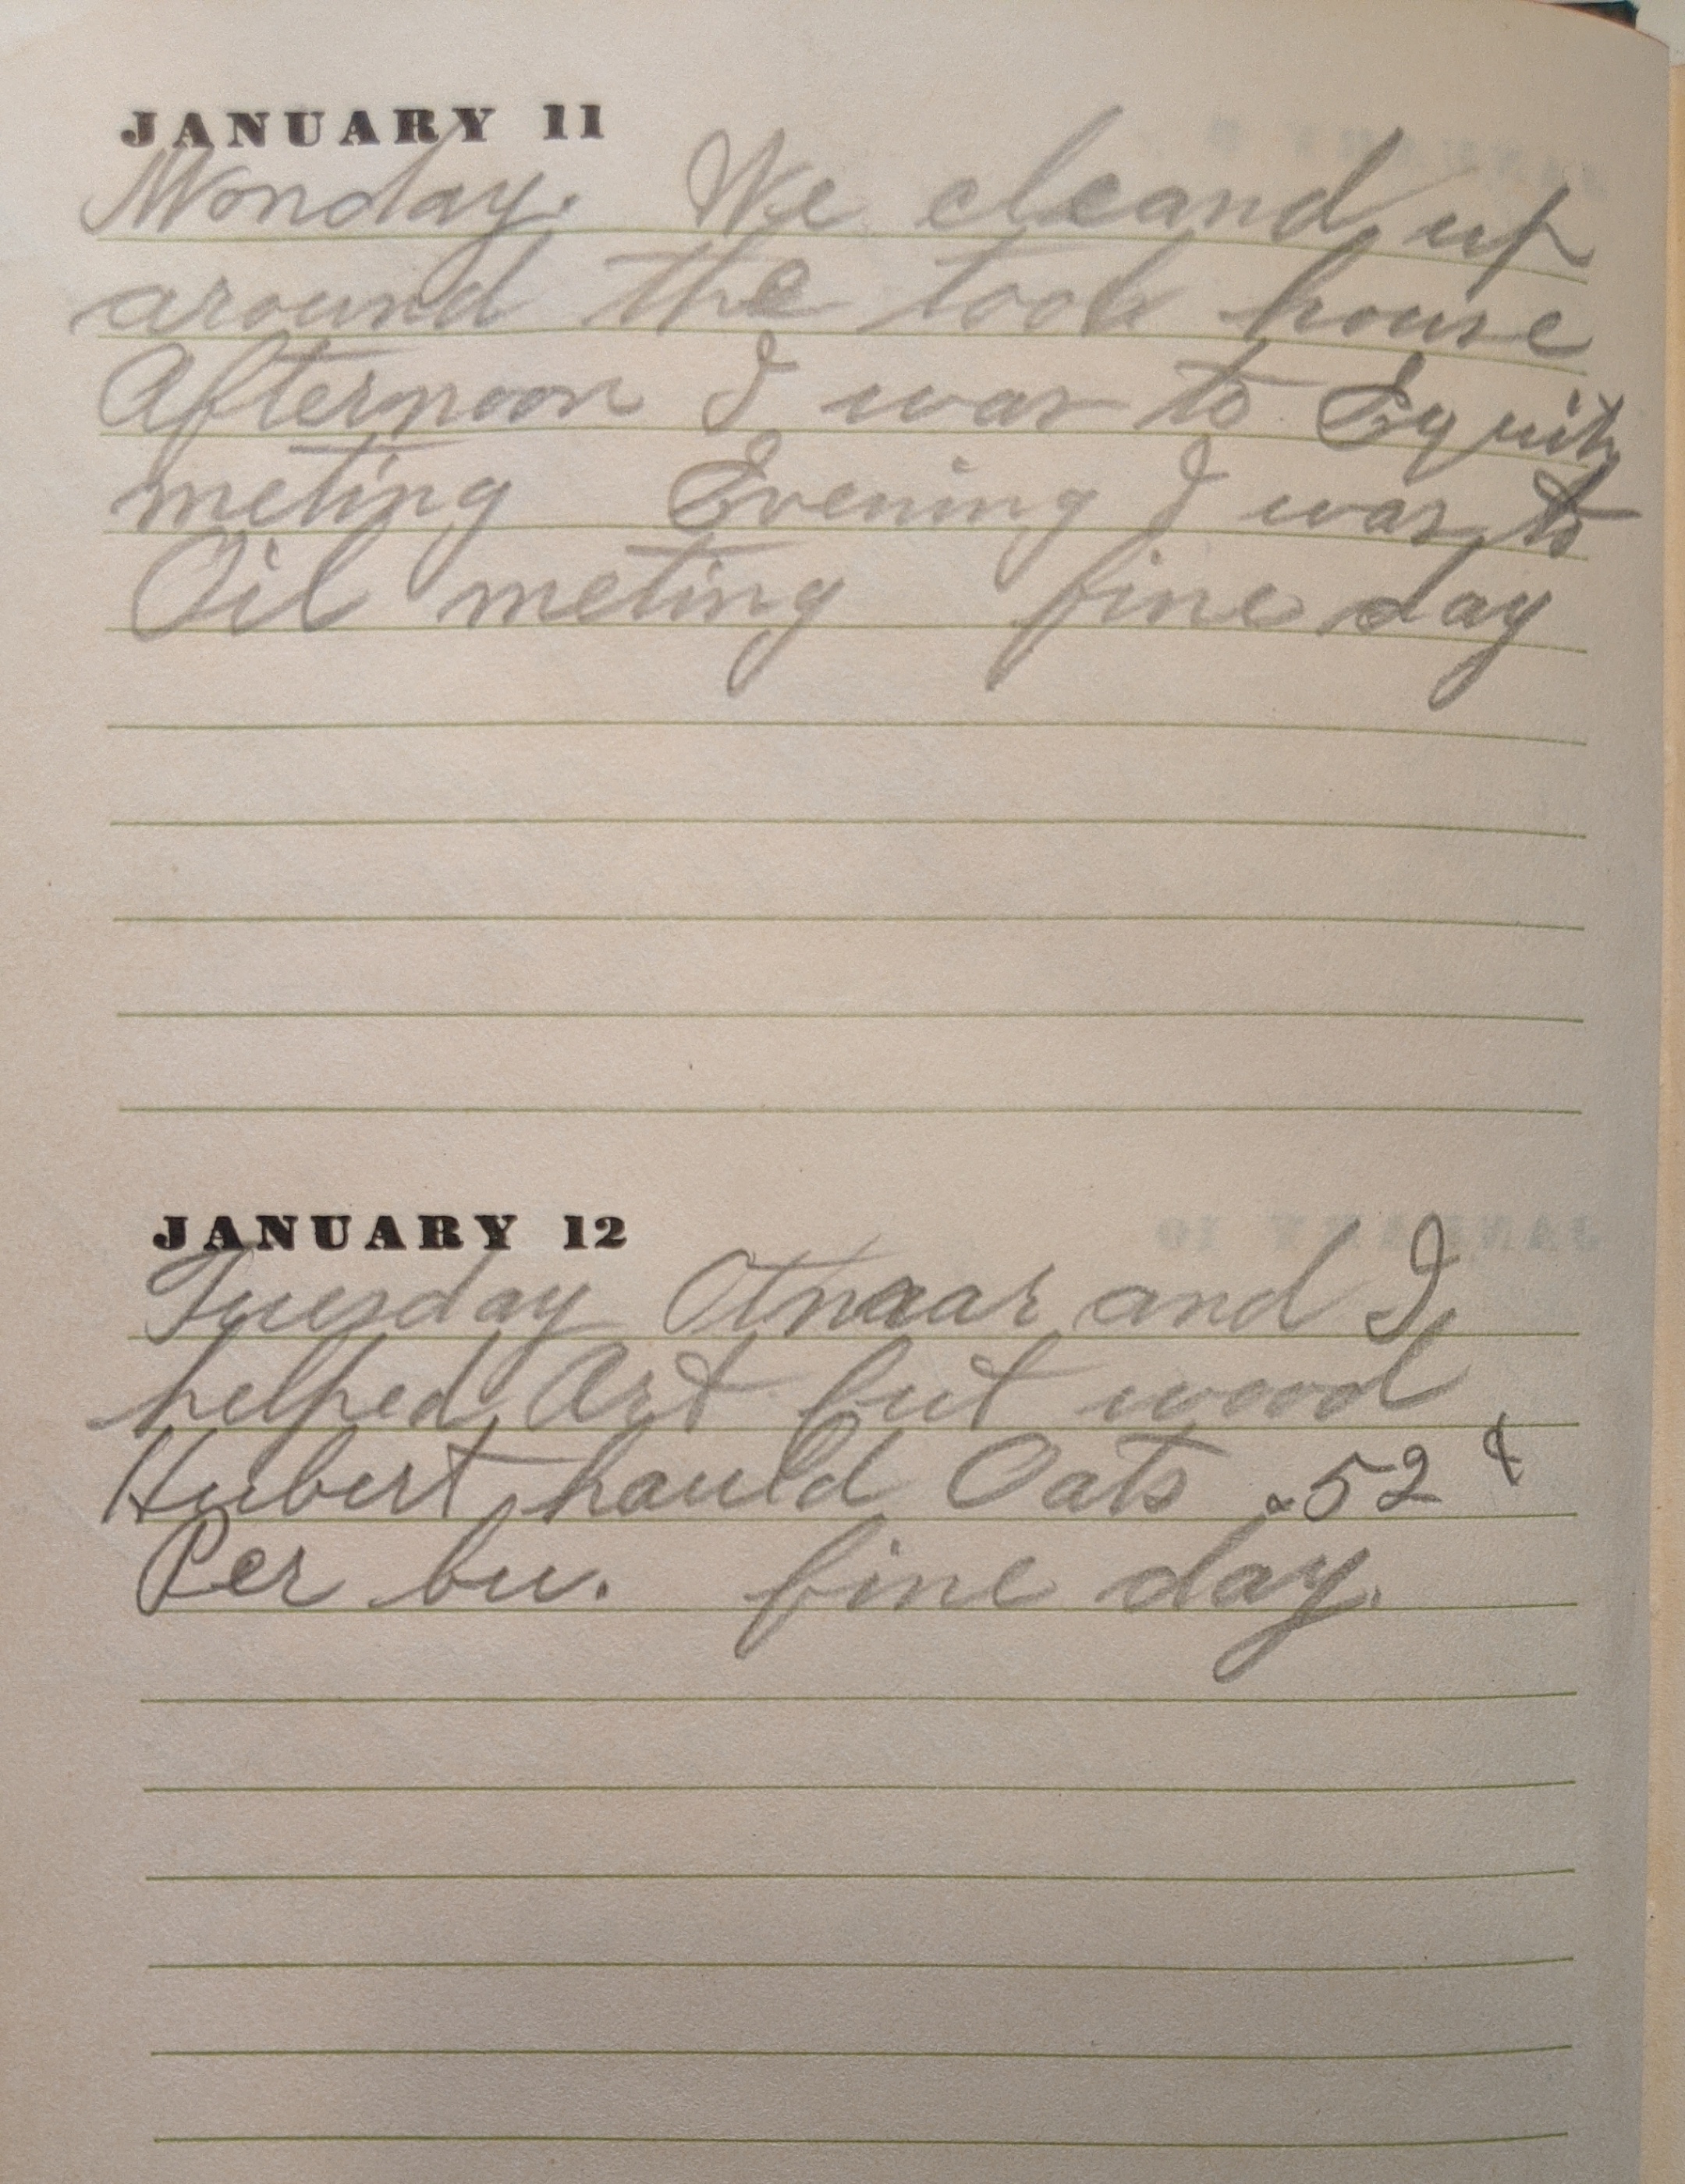 JANUARY 11
Monday. We cleand up
around the tool house
Afternoon I was to Equity
meting Evening I was to
Oil meting fine day
JANUARY 12
Tuesday and I
helped Art wood
Hubert hauld Oats .52 ¢
Per bu. fine day.